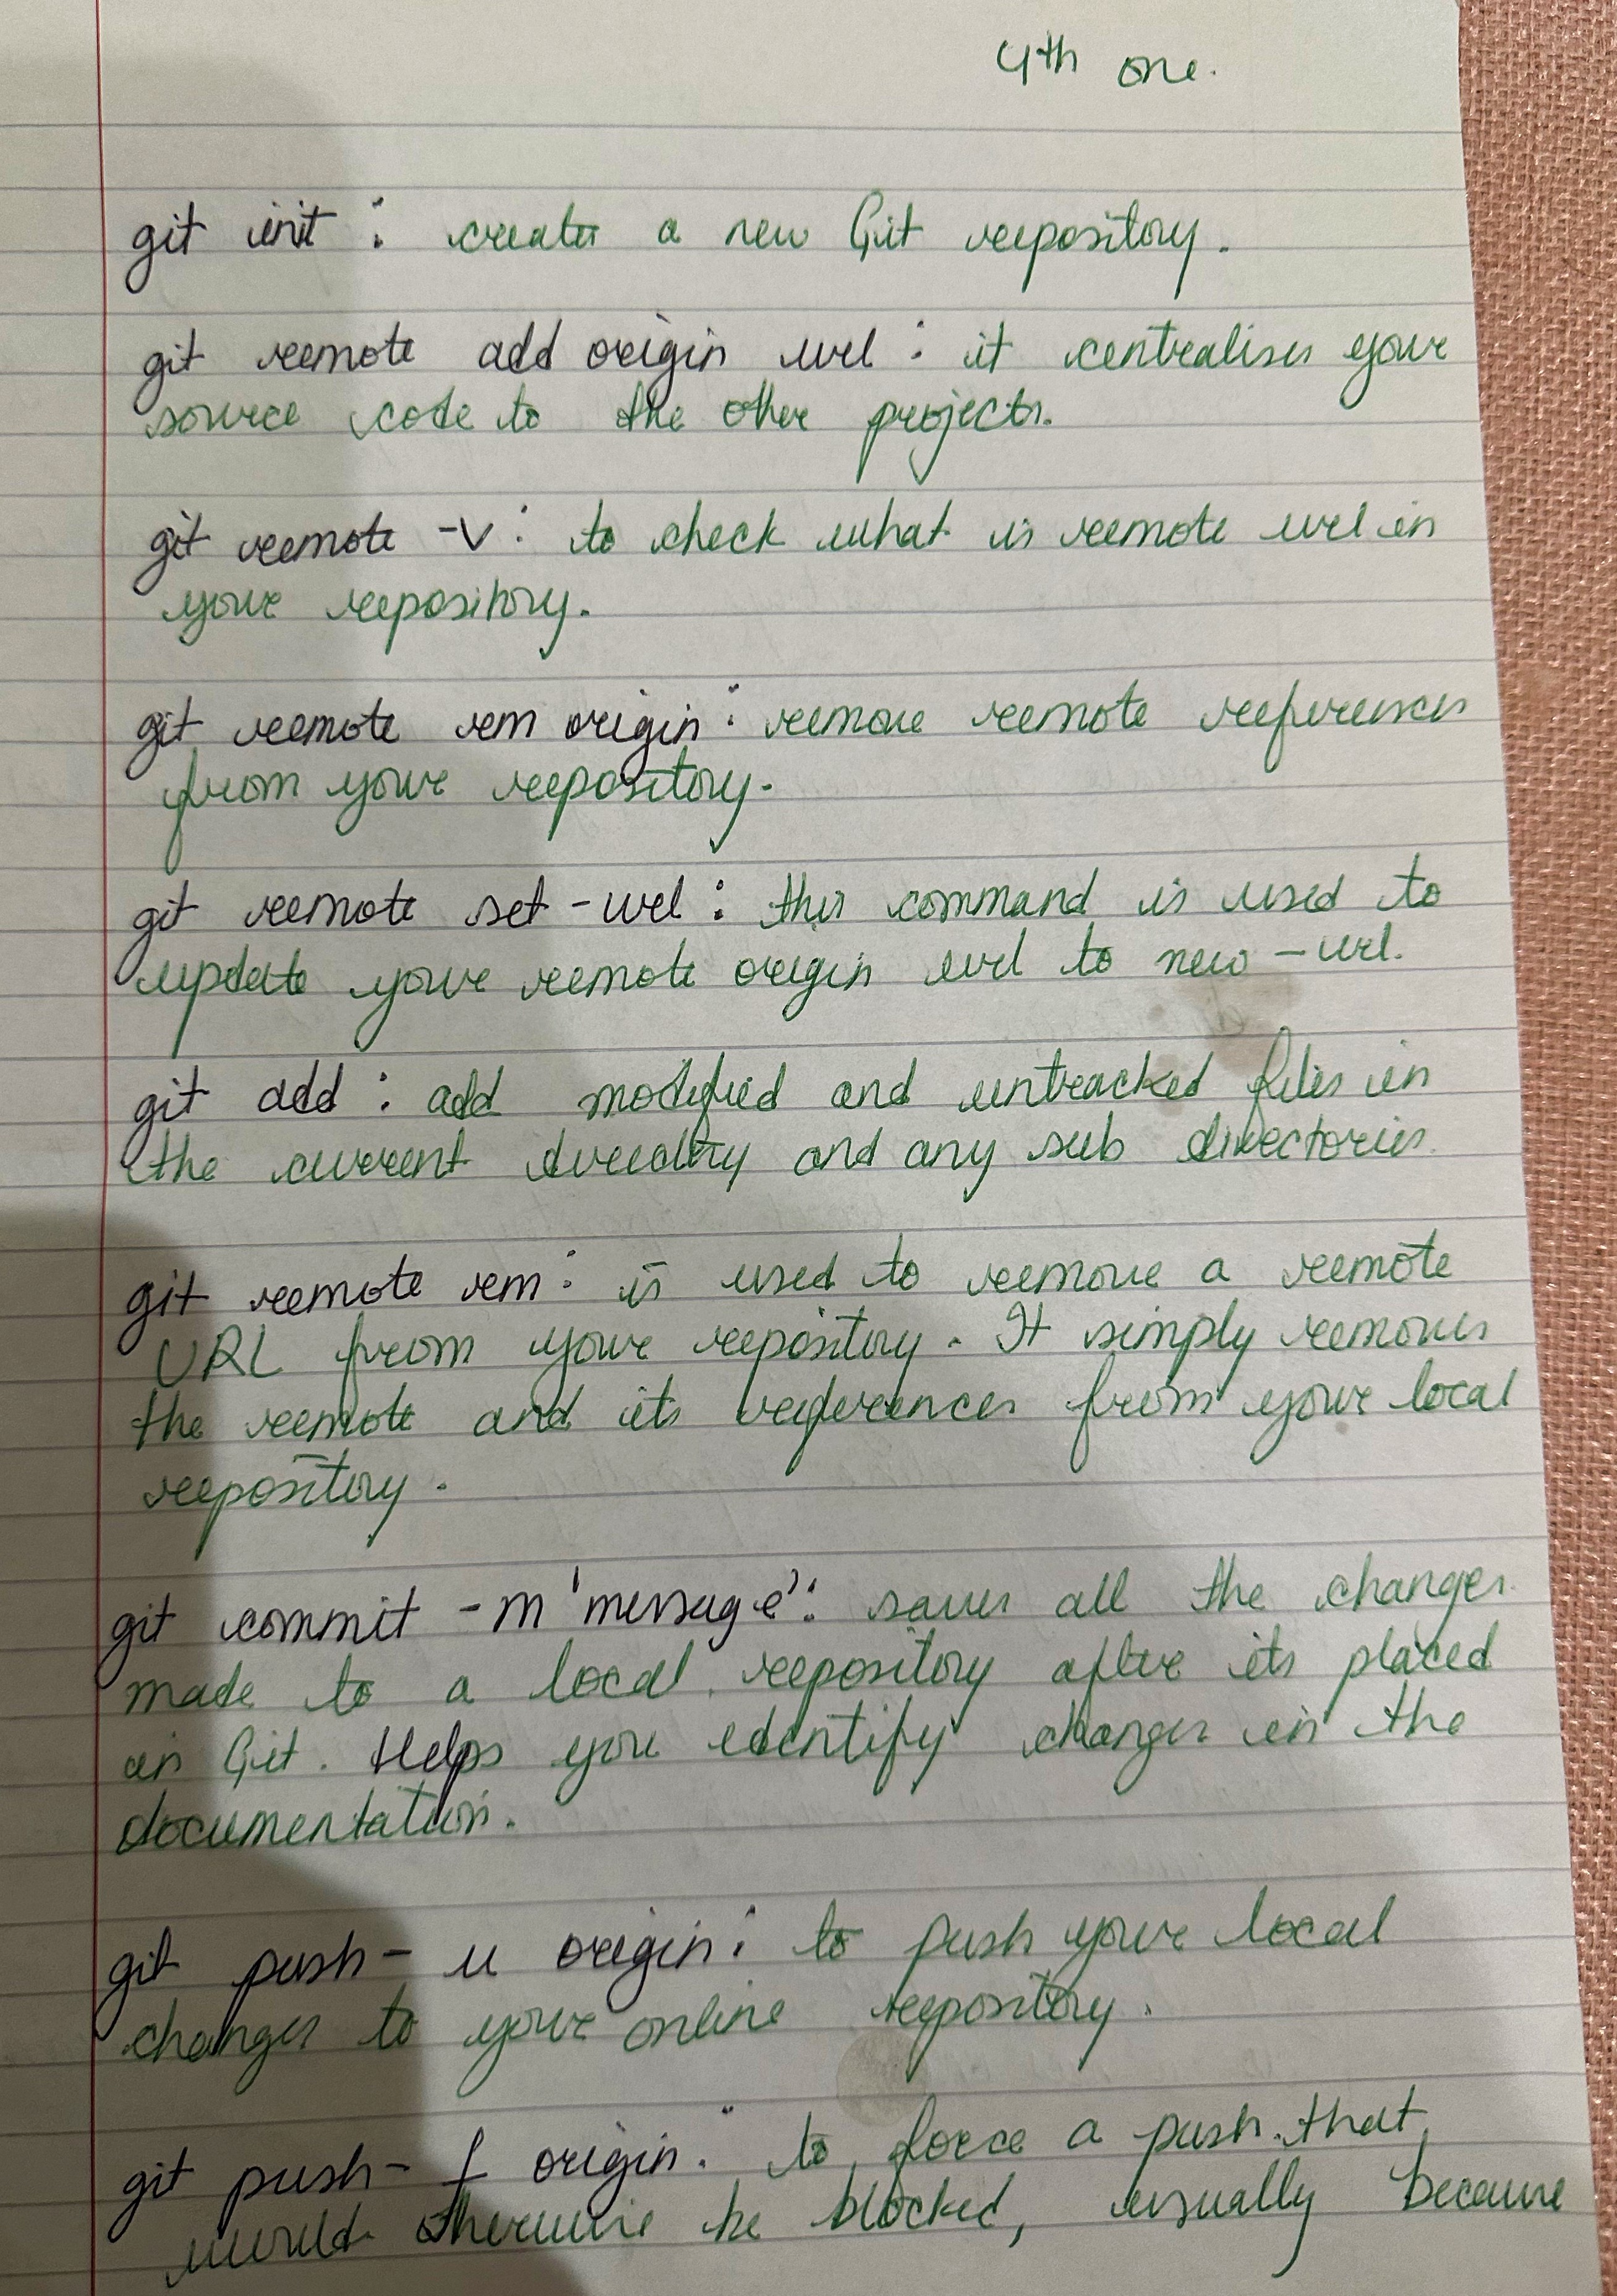 4th one.
git init : creates a new Git repository.
git remote add origin url : it centralises your
source code to the other projects.
git remote -v : to check what is remote url in
your repository.
git remote rm origin : remove remote references
from your repository.
git remote set-url : this command is used to
update your remote origin url to new-url.
git add : add modified and untracked files in
the current directory and any sub directories.
git remote rm : is used to remove a remote
URL from your repository. It simply removes
the remote and its references from your local
repository.
git commit -m 'message' : saves all the changes
made to a local repository after its placed
in Git. Helps you identify changes in the
documentation.
git push - u origin : to push your local
changes to your online repository.
git push - f origin : to force a push that
would otherwise be blocked, usually because